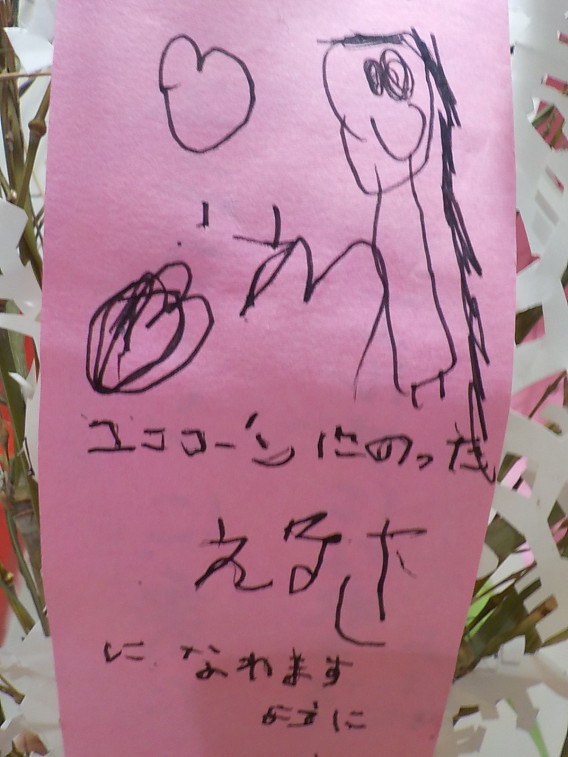 ユニコーンにのった
えるさ
に なれます
ように